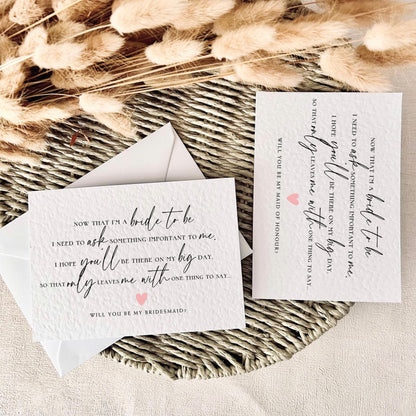 NOW THAT I'M A bride to be
I NEED TO ask SOMETHING IMPORTANT TO me,
I HOPE you'll BE THERE ON MY big DAY,
SO THAT only LEAVES me with ONE THING TO SAY...
WILL YOU BE MY BRIDESMAID?
NOW THAT I'M A bride to be
I NEED TO ask SOMETHING IMPORTANT TO me,
I HOPE you'll BE THERE ON MY big DAY,
SO THAT only LEAVES me with ONE THING TO SAY...
WILL YOU BE MY MAID OF HONOUR?